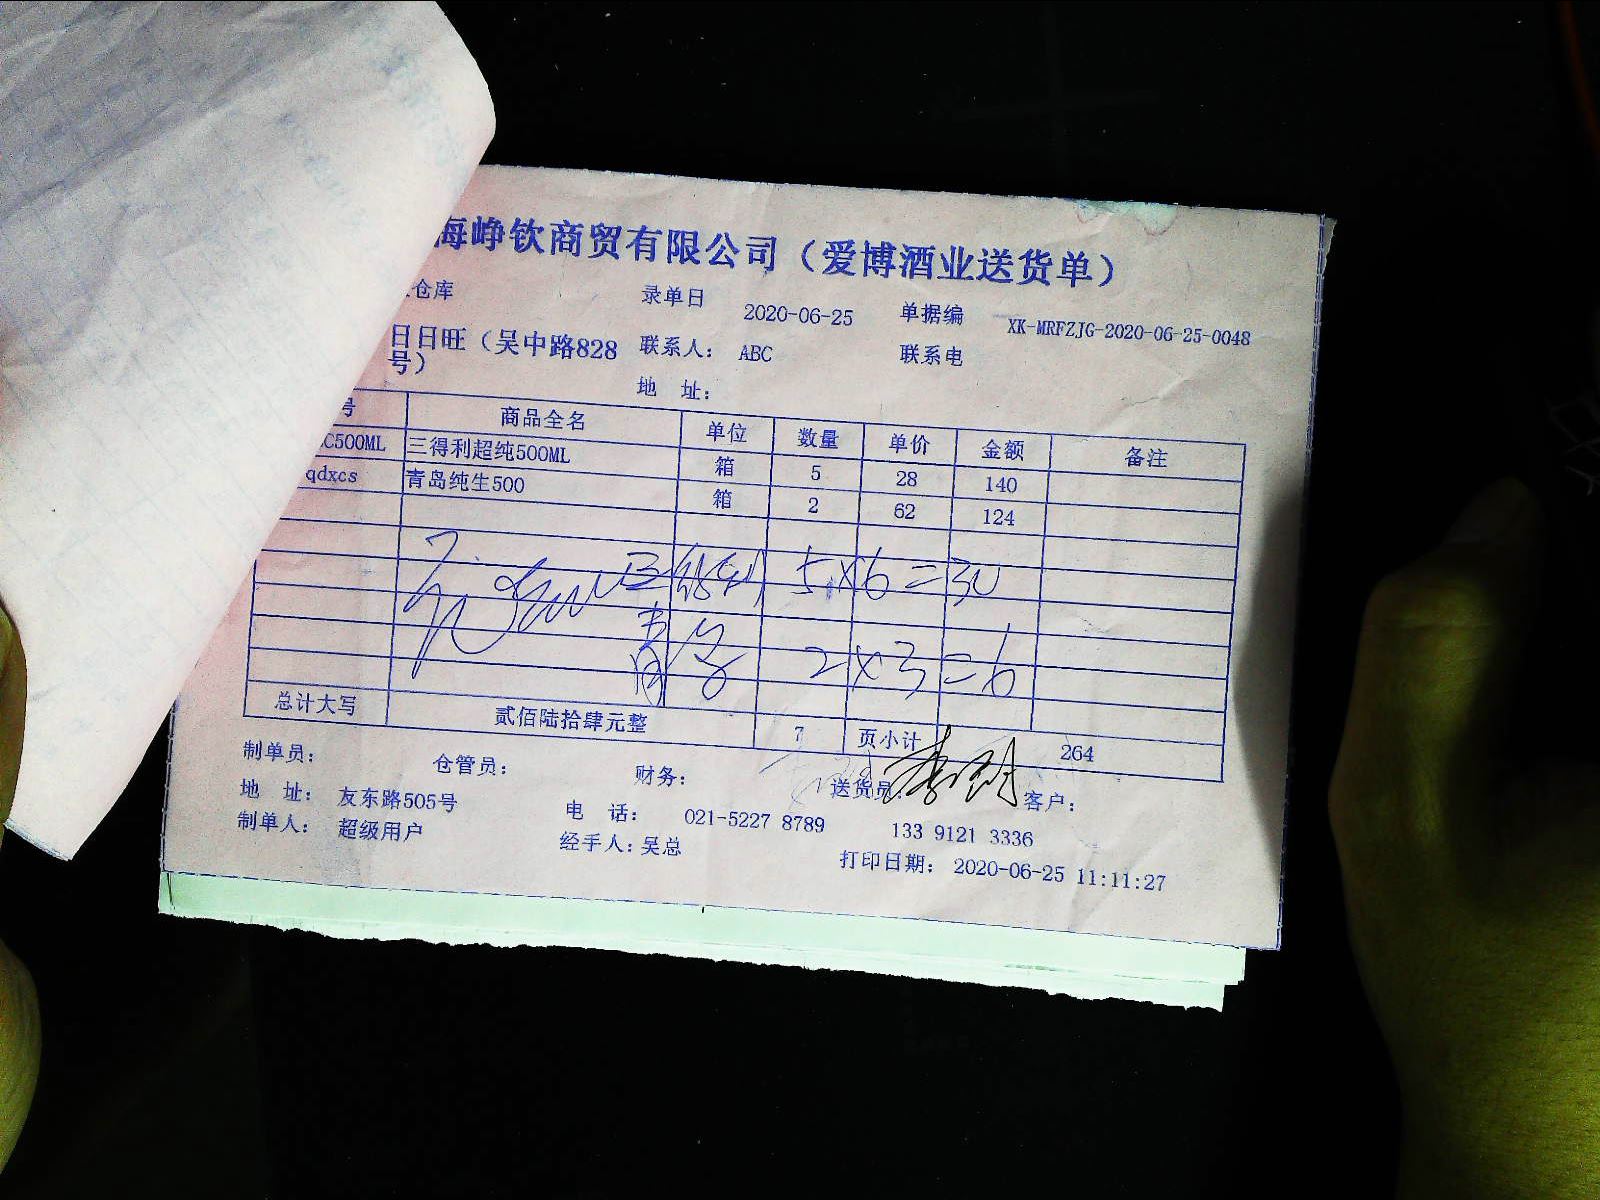 海峥钦商贸有限公司（爱博酒业送货单）
仓库 录单日 2020-06-25 单据编 XK-MRFZJG-2020-06-25-0048
日日旺（吴中路828 联系人： ABC 联系电
号） 地 址：
号 商品全名 单位 数量 单价 金额 备注
C500ML 三得利超纯500ML 箱 5 28 140
qdxcs 青岛纯生500 箱 2 62 124
三得利 5×6=30
青岛 2×3=6
总计大写 贰佰陆拾肆元整 7 页小计 264
制单员： 仓管员： 财务： 送货员： 客户：
地 址： 友东路505号 电 话： 021-5227 8789 133 9121 3336
制单人： 超级用户 经手人：吴总 打印日期： 2020-06-25 11:11:27